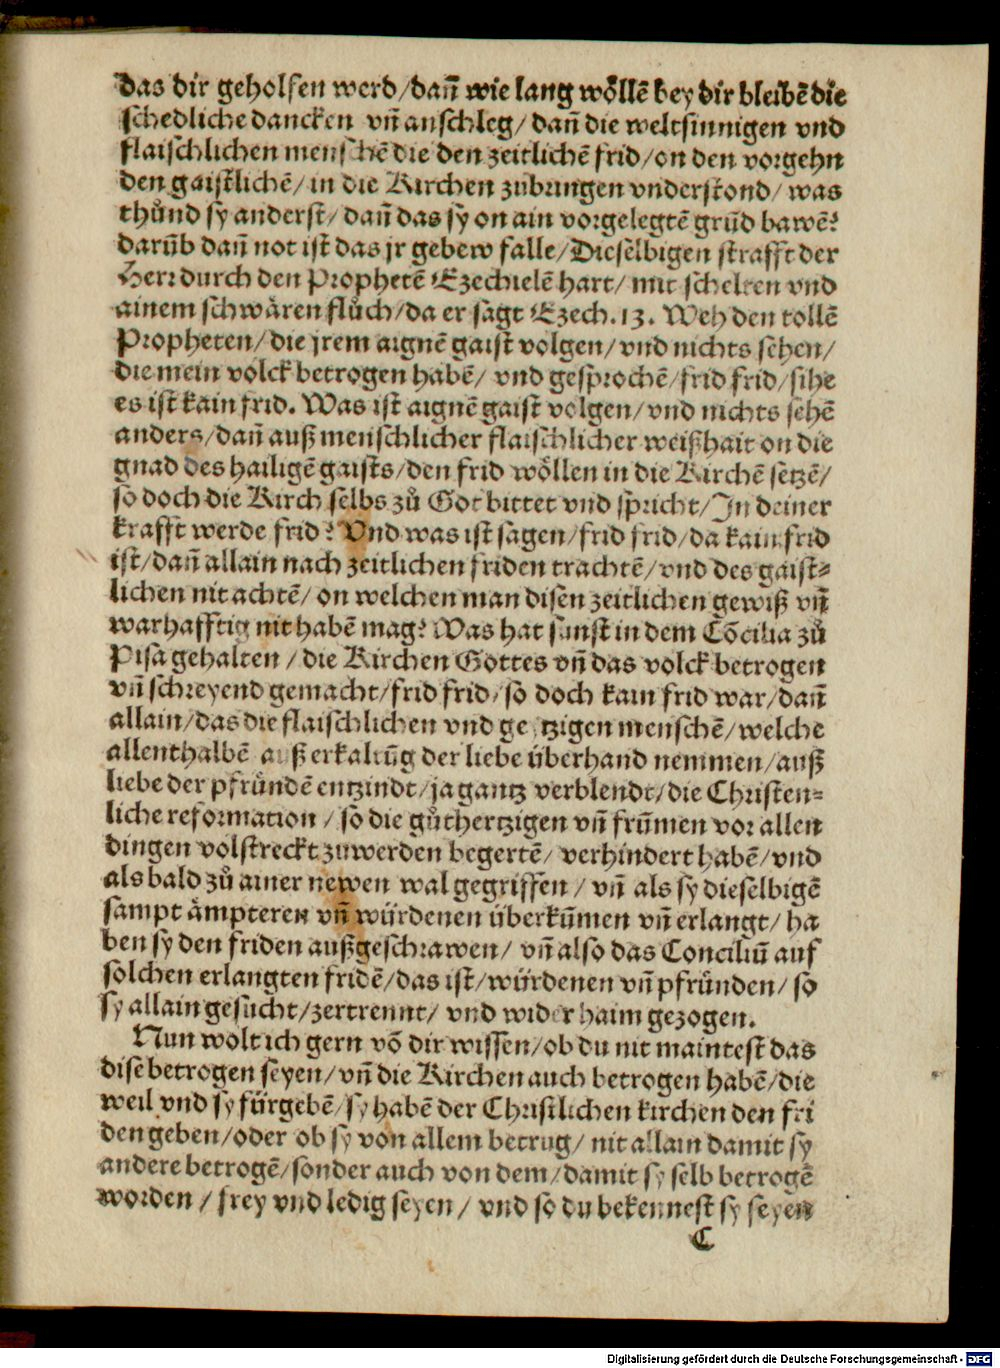 das dir geholfen werd/dañ wie lang wöllē bey dir bleibē die
schedliche dancken vñ anschleg/ dañ die weltsinnigen vnd
flaischlichen menschē die den zeitlichē frid/on den vorgehn
den gaistlichē/ in die Kirchen zubringen vnderstond/ was
thůnd sy anderst/ dañ das sy on ain vorgelegtē grũd bawē?
darũb dañ not ist das jr gebew falle/Dieselbigen strafft der
Herr durch den Prophetē Ezechielē hart/ mit schelten vnd
ainem schwären flůch/da er sagt Ezech.13. Weh den tollē
Propheten/die jrem aignē gaist volgen/vnd nichts sehen/
die mein volck betrogen habē/ vnd gesprochē/frid frid/sihe
es ist kain frid. Was ist aignē gaist volgen/vnd nichts sehē
anders/dañ auß menschlicher flaischlicher weißhait on die
gnad des hailigē gaists/den frid wöllen in die Kirchē setzē/
so doch die Kirch selbs zů Got bittet vnd spricht/In deiner
krafft werde frid? Vnd was ist sagen/frid frid/da kain frid
ist/dañ allain nach zeitlichen friden trachtē/vnd des gaist⸗
lichen nit achtē/ on welchen man disen zeitlichen gewiß vñ
warhafftig nit habē mag? Was hat sunst in dem Cōcilia zů
Pisa gehalten /die Kirchen Gottes vñ das volck betrogen
vñ schreyend gemacht/frid frid/so doch kain frid war/dañ
allain/das die flaischlichen vnd geytzigen menschē/welche
allenthalbē auß erkaltũg der liebe überhand nemmen/auß
liebe der pfründē entzindt/ja gantz verblendt/die Christen⸗
liche reformation /so die gůthertzigen vñ frũmen vor allen
dingen volstreckt zuwerden begertē/ verhindert habē/vnd
als bald zů ainer newen wal gegriffen / vñ als sy dieselbigē
sampt ämpteren vñ würdenen überkũmen vñ erlangt/ ha
ben sy den friden außgeschrawen/ vñ also das Conciliũ auf
solchen erlangten fridē/das ist/würdenen vñ pfründen/ so
sy allain gesucht/zertrennt/ vnd wider haim gezogen.
Nun wolt ich gern vō dir wissen/ob du nit maintest das
dise betrogen seyen/vñ die Kirchen auch betrogen habē/die
weil vnd sy fürgebē/sy habē der Christlichen kirchen den fri
den geben/oder ob sy von allem betrug/ nit allain damit sy
andere betrogē/sonder auch von dem/damit sy selb betrogē
worden / frey vnd ledig seyen / vnd so du bekennest sy seyen
C
Digitalisierung gefördert durch die Deutsche Forschungsgemeinschaft - DFG